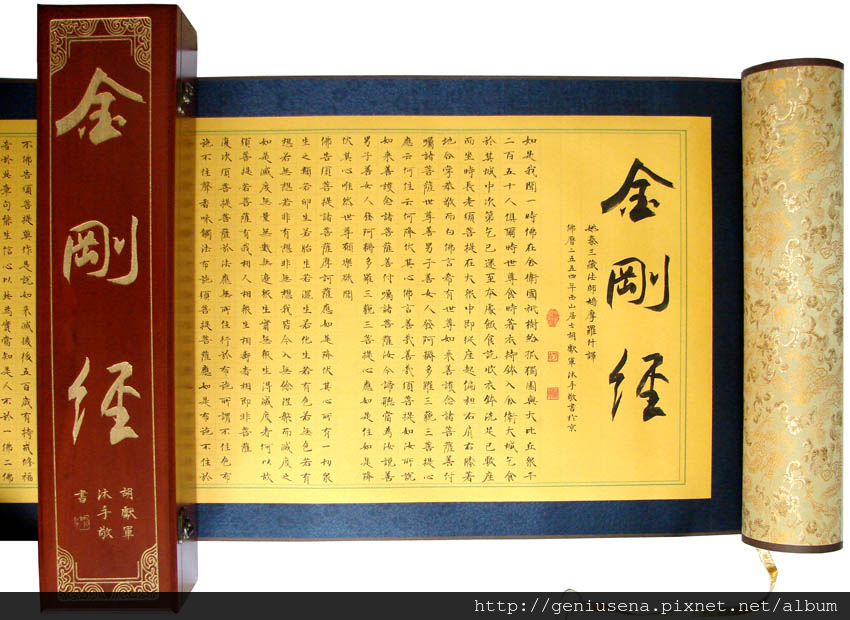 金剛經
姚秦三藏法師鳩摩羅什譯
佛曆二五五四年西山居士胡獻軍沐手敬書於京
如是我聞一時佛在舍衛國祇樹給孤獨園與大比丘眾千
二百五十人俱爾時世尊食時著衣持鉢入舍衛大城乞食
於其城中次第乞已還至本處飯食訖收衣鉢洗足已敷座
而坐時長老須菩提在大眾中即從座起偏袒右肩右膝著
地合掌恭敬而白佛言希有世尊如來善護念諸菩薩善付
囑諸菩薩世尊善男子善女人發阿耨多羅三藐三菩提心
應云何住云何降伏其心佛言善哉善哉須菩提如汝所說
如來善護念諸菩薩善付囑諸菩薩汝今諦聽當為汝說善
男子善女人發阿耨多羅三藐三菩提心應如是住如是降
伏其心唯然世尊願樂欲聞
佛告須菩提諸菩薩摩訶薩應如是降伏其心所有一切眾
生之類若卵生若胎生若濕生若化生若有色若無色若有
想若無想若非有想非無想我皆令入無餘涅槃而滅度之
如是滅度無量無數無邊眾生實無眾生得滅度者何以故
須菩提若菩薩有我相人相眾生相壽者相即非菩薩
復次須菩提菩薩於法應無所住行於布施所謂不住色布
施不住聲香味觸法布施須菩提菩薩應如是布施不住於
金剛經
胡獻軍
沐手敬
書
不佛告須菩提莫作是說如來滅後後五百歲有持戒修福
者於此章句能生信心以此為實當知是人不於一佛二佛
http://geniusena.pixnet.net/album